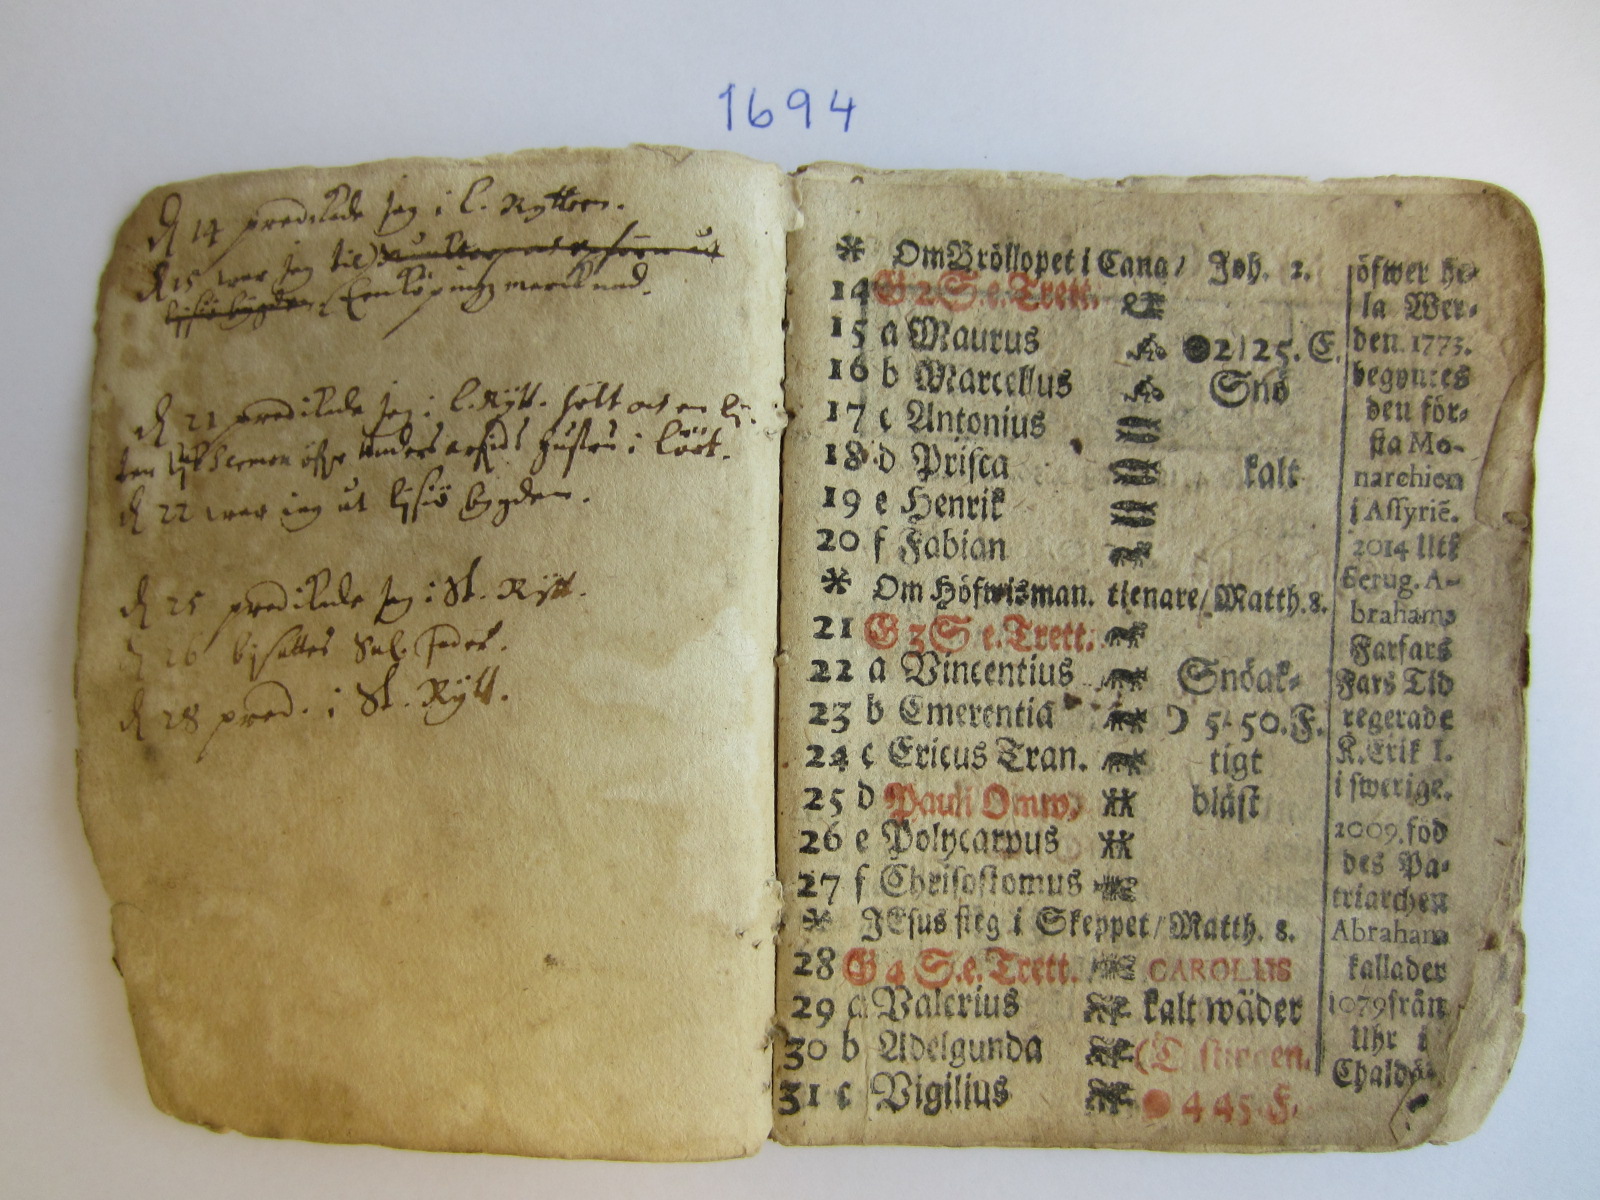 1694
D 14 predikade jag i L. Rytteren.
D 15 war jag til
Enköping marknad.
D 21 predikade jag i L. Rytt. hölt och en
sermon öfwer Anders hustru i
D 22 war jag ut bygden.
D 25 predikade jag i St. Rytt.
26 bisattes Sal.
D 28 pred. i St. Rytt.
* Om Bröllopet i Cana / Joh. 2.
14 G 2 S. e. Trett.
15 a Maurus ●2/25. E.
16 b Marcellus Snö
17 c Antonius
18 d Prisca kalt
19 e Henrik
20 f Fabian
* Om Höfwisman. tienare / Matth. 8.
21 G 3 S e. Trett.
22 a Vincentius Snöak-
23 b Emerentia ☽ 5. 50. F.
24 c Ericus Tran. tigt
25 d Pauli Omw. bläst
26 e Polycarpus
27 f Chrisostomus
* JEsus steg i Skeppet / Matth. 8.
28 G 4 S. e. Trett. CAROLUS
29 a Valerius kalt wäder
30 b Adelgunda
31 c Vigilius ● 4 45 F.
öfwer he-
la Wer-
den. 1773.
begyntes
den för-
sta Mo-
narchien
i Assyriē.
2014 Utk
Serug. A-
brahams
Farfars
Fars Tid
regerade
K. Erik I.
i swerige.
2009. föd
des Pa-
triarchen
Abraham
kallader
1079 från
Uhr i
Chaldä-